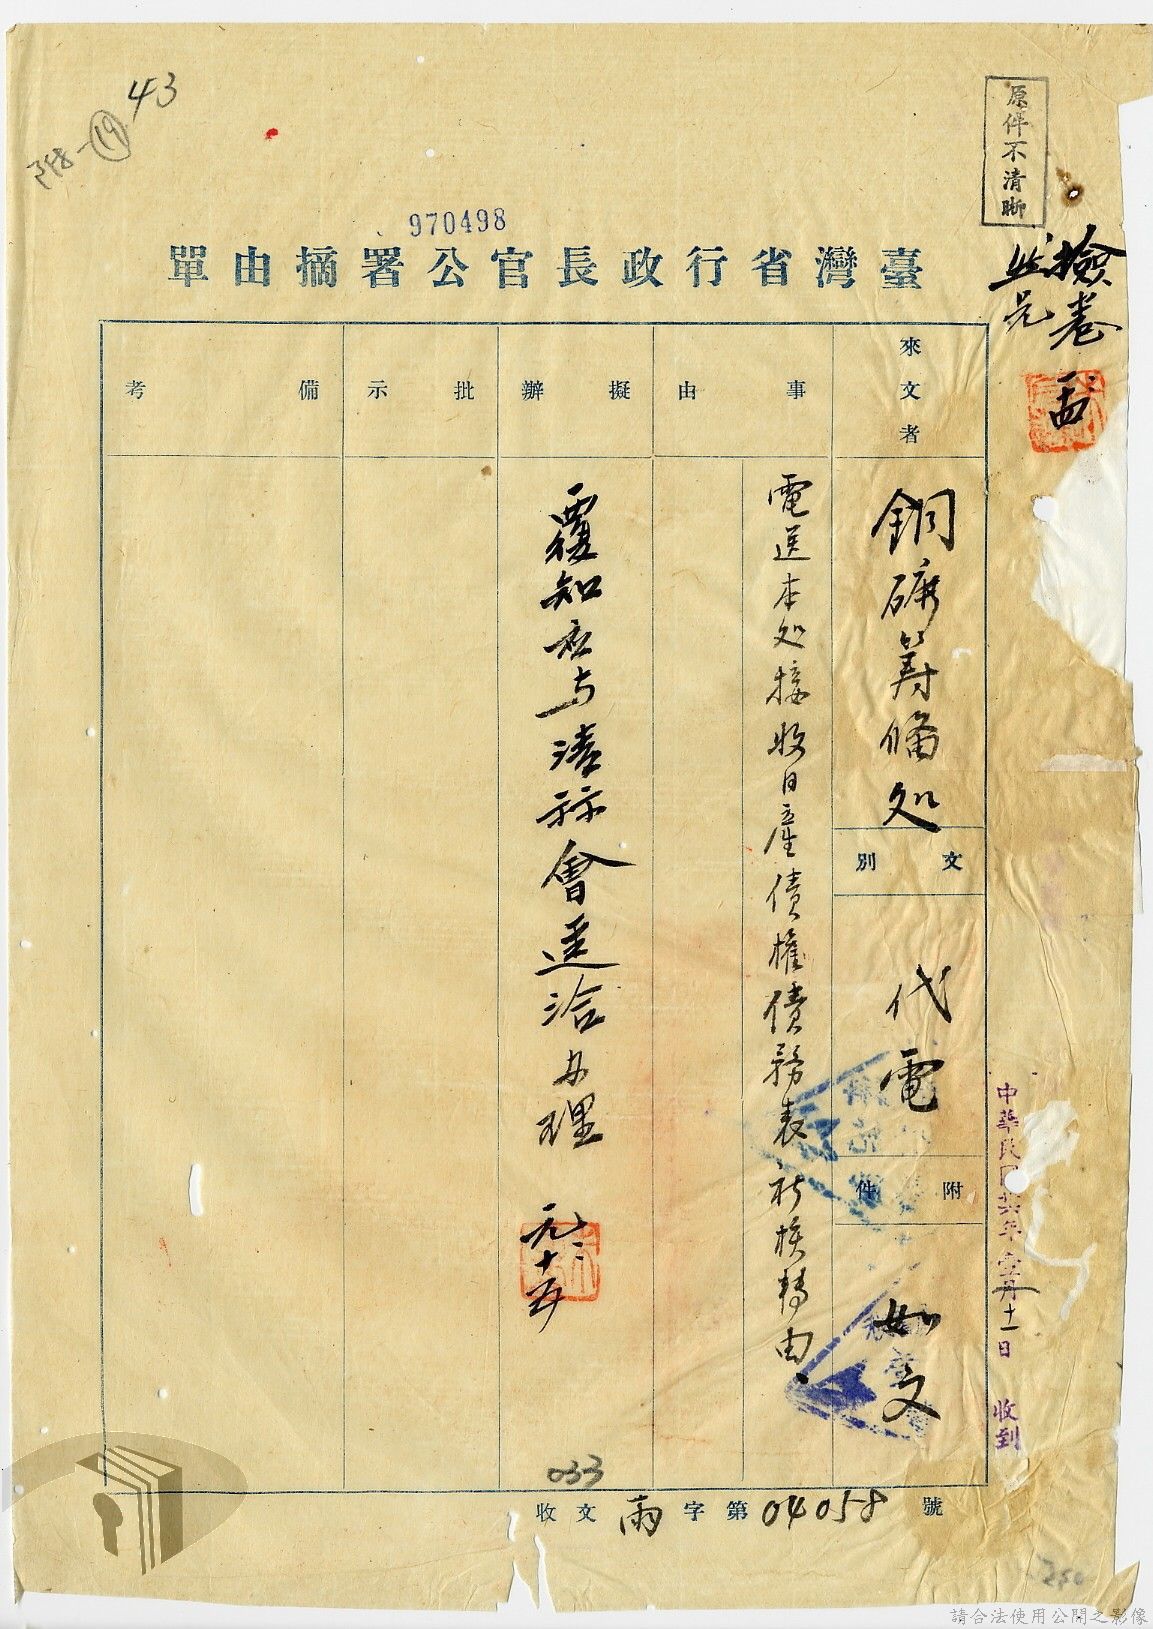 43
原件不清晰
970498
臺灣省行政長官公署摘由單
檢卷
來文者
銅礦籌備処
文別
代電
附件
如文
事由
電送本処接收日產債權債務表祈核轉由
擬辦
覆知應与清
會逕洽办理
元、十五
批示
備考
中華民國卅六年壹月十一日 收到
033
收文 雨 字第 04058 號
請合法使用公開之影像